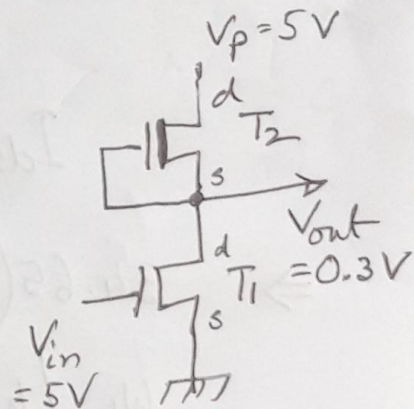 Vp = 5V
d
T2
s
Vout
= 0.3V
d
T1
s
Vin
= 5V